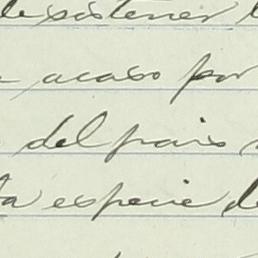 de sostener
acaso por
del pais
ta especie de